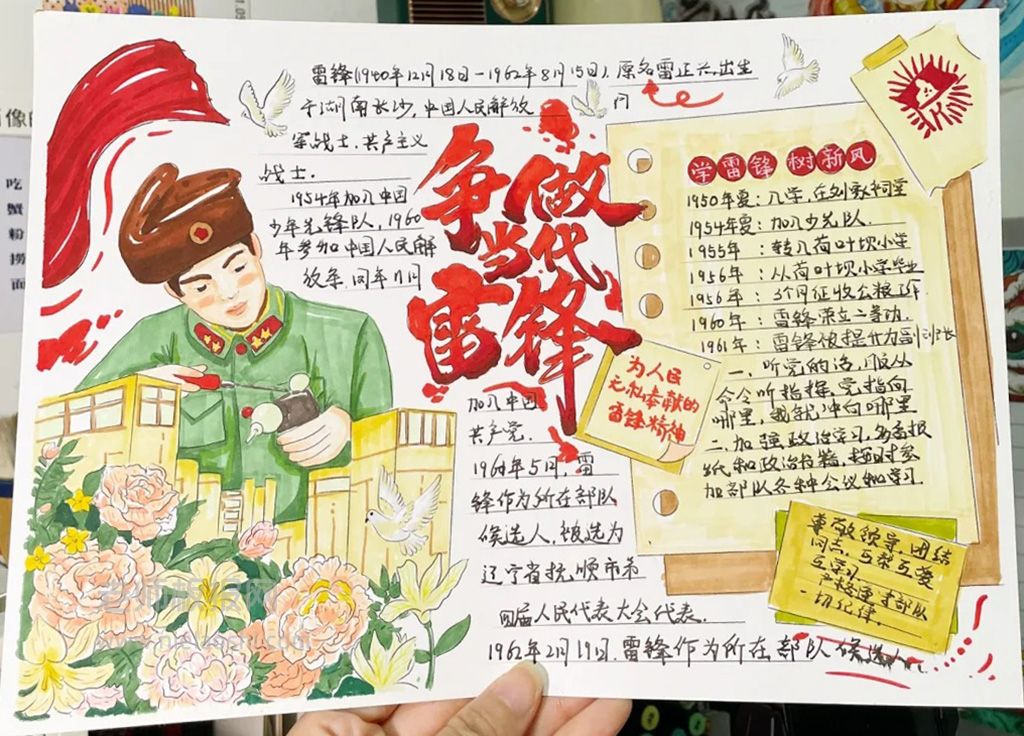 雷锋(1940年12月18日-1962年8月15日),原名雷正兴,出生
于湖南长沙,中国人民解放
军战士.共产主义
战士.
1954年加入中国
少年先锋队,1960
年参加中国人民解
放军.同年11月
争做
当代
雷锋
加入中国
共产党.
1961年5月,雷
锋作为所在部队
候选人,被选为
辽宁省抚顺市第
四届人民代表大会代表.
1962年2月19日.雷锋作为所在部队候选人
学雷锋 树新风
1950年夏:入学,在刘家祠堂
1954年夏:加入少先队.
1955年:转入荷叶坝小学
1956年:从荷叶坝小学毕业
1956年:3个月征收公粮工作.
1960年:雷锋荣立二等功.
1961年:雷锋被提升为副班长
一、听党的话,服从
命令听指挥,党指向
哪里,我就冲向哪里
二、加强政治学习,多看报
纸和政治书籍,按时参
加部队各种会议和学习.
为人民
无私奉献的
雷锋精神
尊敬领导,团结
同志,互帮互爱
互学习.
严格遵守部队
一切纪律.
吃
蟹
粉
捞
面
老师板报网